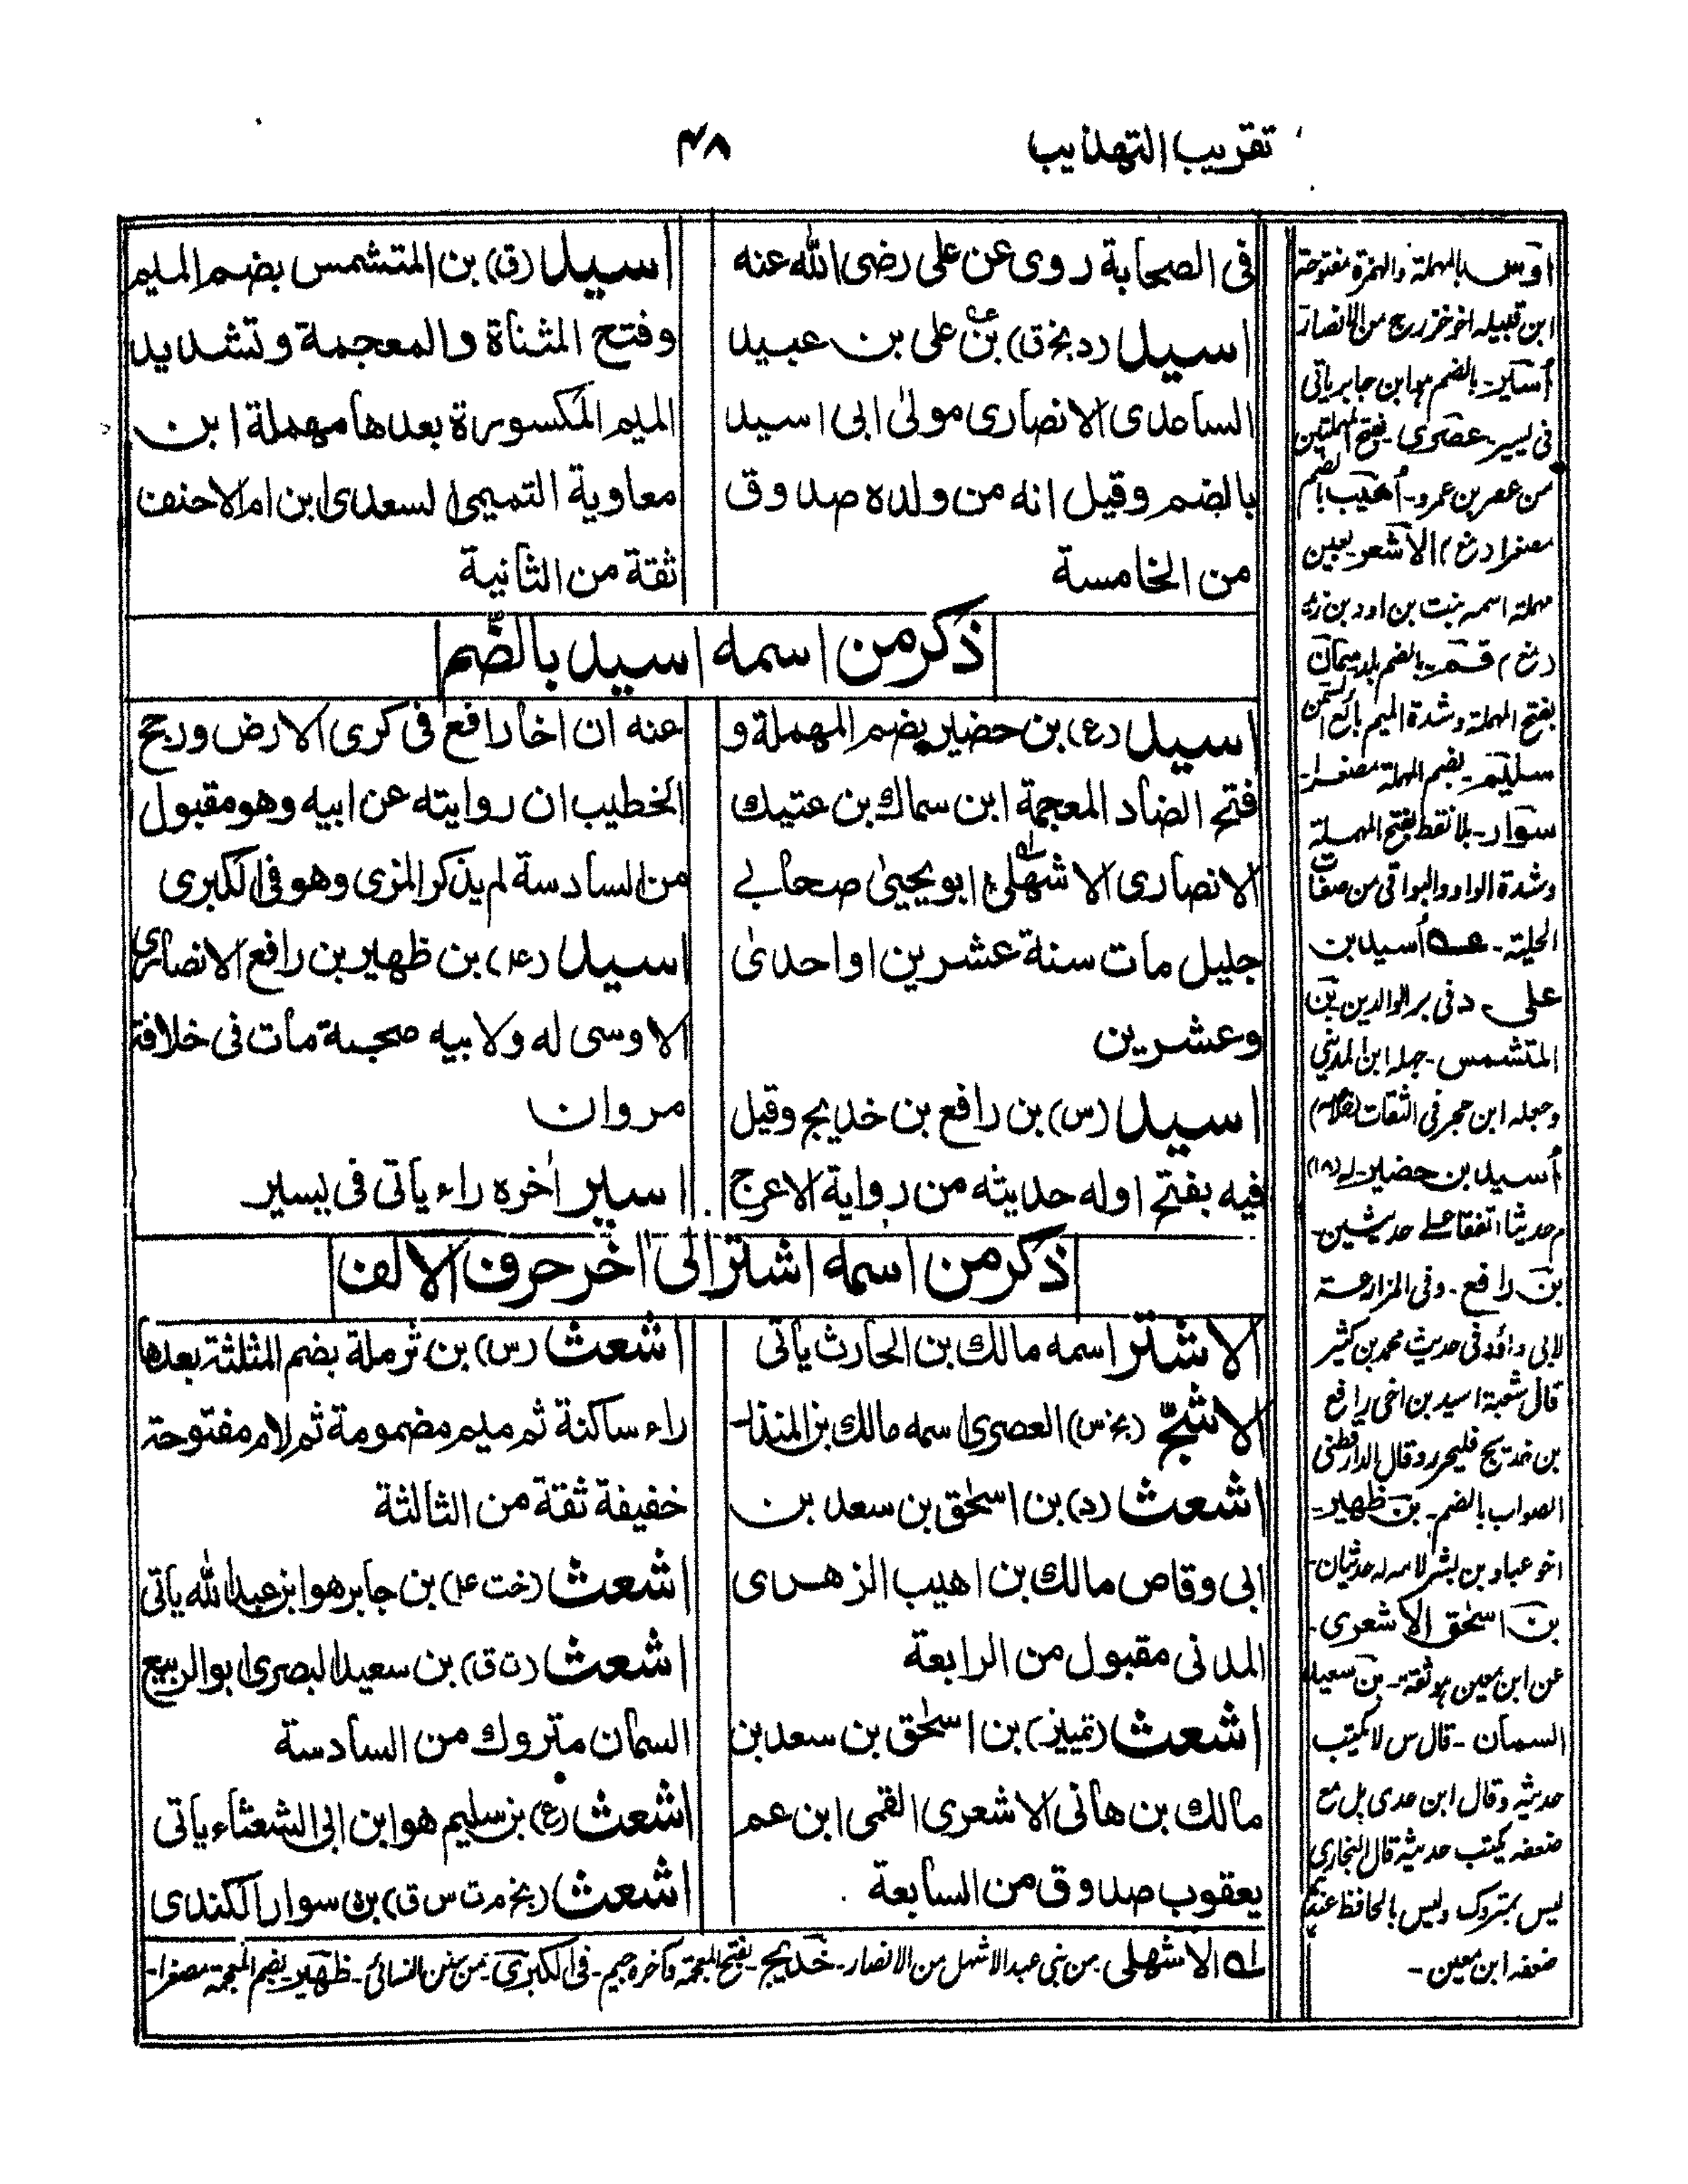 تقريب التهذيب
۴۸
فى الصحابة روى عن على رضى الله عنه
اسيد (د بخ ق) بن على بن عبيد
الساعدى الانصارى مولىٰ ابى اسيد
بالضم وقيل انه من ولده صدوق
من الخامسة
اسيد (ق) بن المتشمس بضم الميم
وفتح المثناة والمعجمة وتشديد
الميم المكسورة بعدها مهملة ابن
معاوية التميمى السعدى ابن ام الاحنف
ثقة من الثانية
ذكر من اسمه اسيد بالضّم
اسيد (ع) بن حضير بضم المهملة و
فتح الضاد المعجمة ابن سماك بن عتيك
الانصارى الاشهلى ابو يحيىٰ صحابے
جليل مات سنة عشرين او احدىٰ
وعشرين
اسيد (س) بن رافع بن خديج وقيل
فيه بفتح اوله حديثه من رواية الاعرج
عنه ان اخا رافع فى كرى الارض ورجح
الخطيب ان روايته عن ابيه وهو مقبول
من السادسة لم يذكر المزى وهو فى الكبرى
اسيد (عه) بن ظهير بن رافع الانصارى
الاوسى له ولابيه صحبة مات فى خلافة
مروان
اسير اخره راء ياتى فى يسير
ذكر من اسمه اشتر الى اٰخر حرف الالف
الاشتر اسمه مالك بن الحارث ياتى
الاشجّ (بخ س) العصرى اسمه مالك بن المنذر
اشعث (د) بن اسحٰق بن سعد بن
ابى وقاص مالك بن اهيب الزهرى
المدنى مقبول من الرابعة
اشعث (تمييز) بن اسحٰق بن سعد بن
مالك بن هانى الاشعرى القمى ابن عم
يعقوب صدوق من السابعة
اشعث (س) بن ثرملة بضم المثلثة بعدها
راء ساكنة ثم ميم مضمومة ثم لام مفتوحة
خفيفة ثقة من الثالثة
اشعث (خت عه) بن جابر هو ابن عبدالله ياتى
اشعث (ت ق) بن سعيد البصرى ابو الربيع
السمان متروك من السادسة
اشعث (ع) بن سليم هو ابن ابى الشعثاء ياتى
اشعث (بخ م ت س ق) بن سوار الكندى
له الاشهلى من بنى عبد الاشهل من الانصار۔ خديج۔ بفتح المعجمة وآخره جيم۔ فى الكبرى۔ من سنن النسائى۔ ظهير۔ بضم المعجمة مصغرا۔
اوس بالمهملة والهمزة مفتوحة
ابن قبيله اخو خزرج من الانصار
أسير۔ بالضم هو ابن جابر ياتى
فى يسير۔ عصرى۔ بفتح المهملتين
من عصر بن عمرو۔ أهيب بالضم
مصغرا الاشعر بعين
مهملة اسمه نبت بن ادد بن زيد
قم۔ بالضم بلد سمان
بفتح المهملة وشدة الميم بائع السمن
سليم۔ بضم المهملة مصغرا۔
سوار۔ بلا نقط بفتح المهملة
وشدة الواو والبواقى من صفات
الحلية۔ عه أسيد بن
على د فى بر الوالدين بن
المتشمس۔ جهله ابن المدينى
وجعله ابن حجر فى الثقات
أسيد بن حضير۔ له (۱۸)
حديثا اتفقا على حديثين۔
بن رافع۔ وفى المزارعة
لابى داؤد فى حديث محمد بن كثير
قال شعبة اسيد بن اخى رافع
بن خديج فليحرر وقال الدارقطنى
الصواب بالضم۔ بن ظهير۔
اخو عباد بن بشر لامه له حديثان۔
بن اسحٰق الاشعرى۔
عن ابن معين موثقة۔ بن سعيد
السمان۔ قال س لا يكتب
حديثه وقال ابن عدى بل مع
ضعفه يكتب حديثه قال البخارى
ليس بمتروك وليس بالحافظ عندهم
ضعفه ابن معين۔